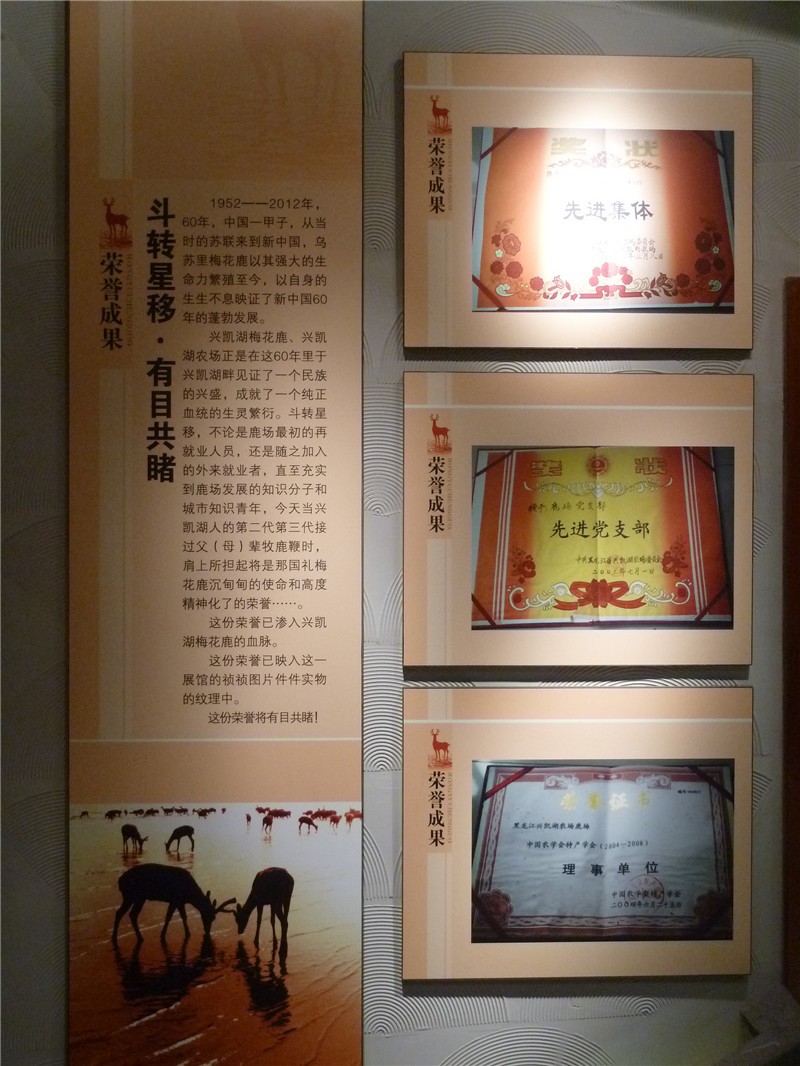 荣誉成果
斗转星移·有目共睹
1952——2012年，
60年，中国一甲子，从当
时的苏联来到新中国，乌
苏里梅花鹿以其强大的生
命力繁殖至今，以自身的
生生不息映证了新中国60
年的蓬勃发展。
兴凯湖梅花鹿、兴凯
湖农场正是在这60年里于
兴凯湖畔见证了一个民族
的兴盛，成就了一个纯正
血统的生灵繁衍。斗转星
移，不论是鹿场最初的再
就业人员，还是随之加入
的外来就业者，直至充实
到鹿场发展的知识分子和
城市知识青年，今天当兴
凯湖人的第二代第三代接
过父（母）辈牧鹿鞭时，
肩上所担起将是那国礼梅
花鹿沉甸甸的使命和高度
精神化了的荣誉……。
这份荣誉已渗入兴凯
湖梅花鹿的血脉。
这份荣誉已映入这一
展馆的祯祯图片件件实物
的纹理中。
这份荣誉将有目共睹！
荣誉成果
奖 状
先进集体
荣誉成果
奖 状
授予 鹿场党支部
先进党支部
中共黑龙江省兴凯湖农场委员会
二00三年七月一日
荣誉成果
荣誉证书
黑龙江兴凯湖农场鹿场
中国农学会特产学会(2004-2008)
理事单位
中国农学会特产学会
二00四年六月二十五日